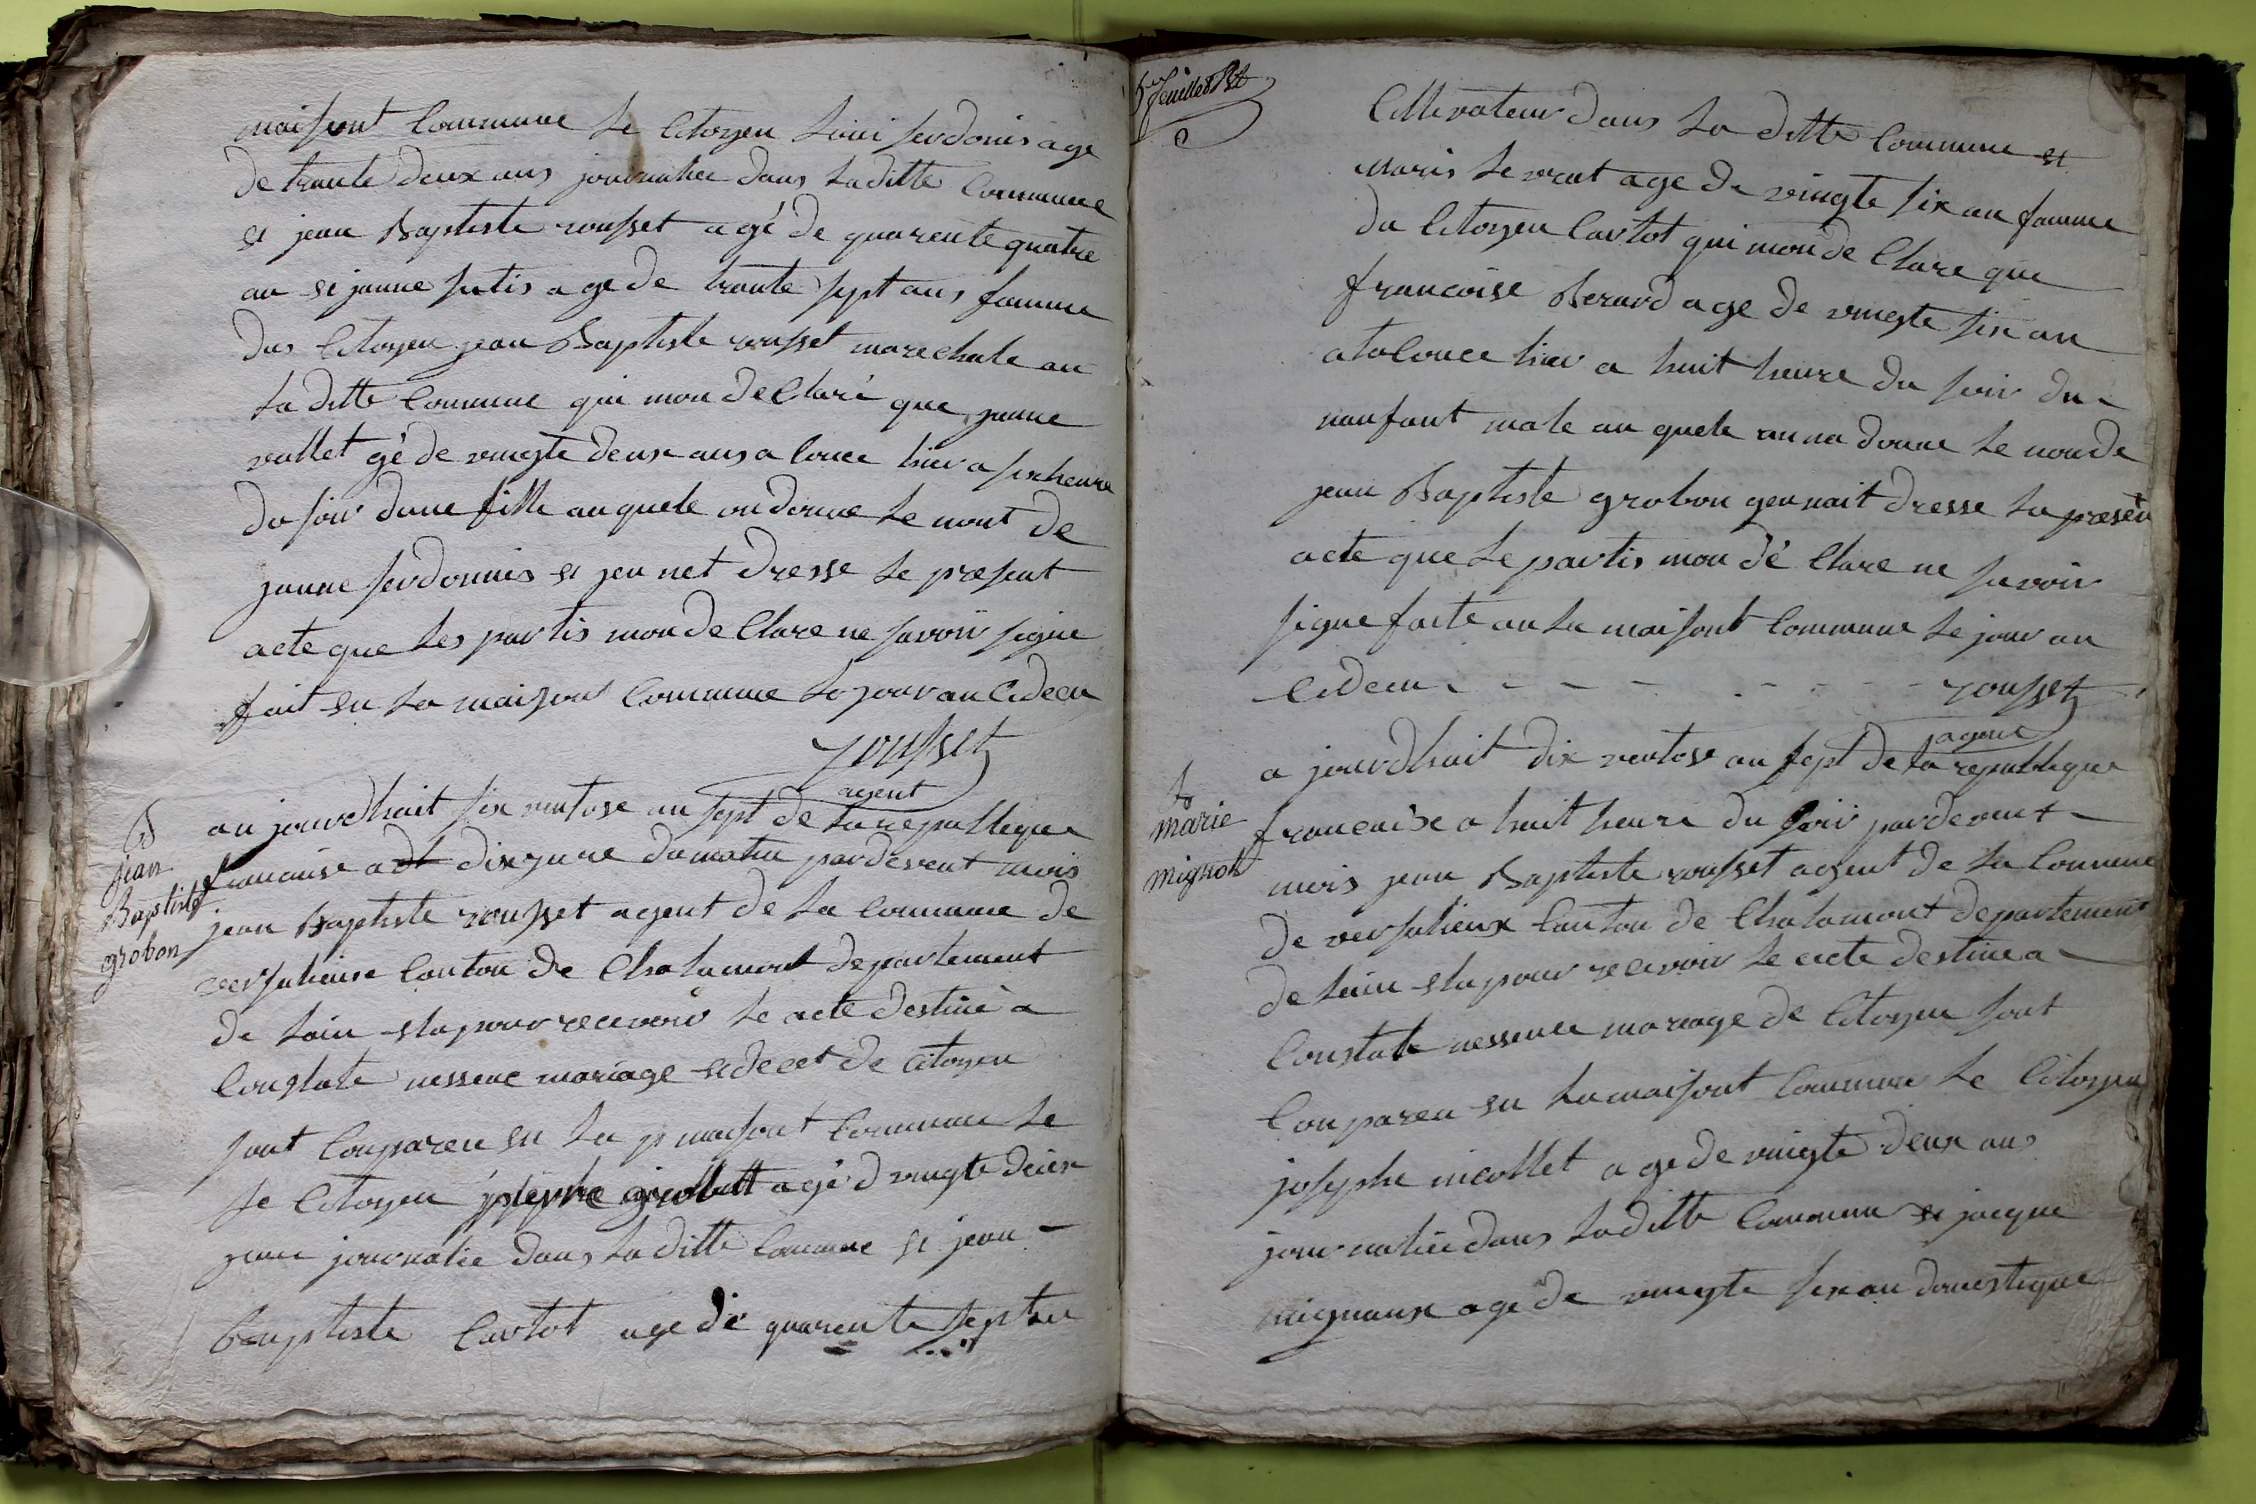 maisont Commune le Citoyen loui serdonis age
de trante deux ans journalier dans laditte Commune
et jean Baptiste rousset agé de quarente quatre
an et janne sutis age de trante sept ans famme
dus Citoyen jean Baptiste rousset marechale an
la ditte Commune qui mon de Claré que janne
vallet gé de vingte deux ans a Couce hier a six heure
du soir dune fille auquele on donne le nont de
janne serdonnis et jeu net dresse le present
acte que les partis mon de Clare ne savoir signe
fait en la maisont Commune le jour an Cideçu
rousset
agent
6
jean
Baptiste
grobon
au jourdhuit six ventose an sept de la republeque
francaise a dix jure du matin pardevent mois
jean Baptiste rousset agent de la Commune de
versalieuse Canton de Chalamont departement
de lain elu pour recevoir le acte destiné a
Constate nessence mariage et decet de Citoyen
sont Conparen en la maisont Commune le
le Citoyen josephe agé d vingte deux
jeanne journalie dans la ditte Commune et jean
Baptiste Cartot age de quarente sept an
feuillet
Cultivateur dans la ditte Commune et
Maris levrat age de vingte six an famme
du Citoyen Cartot qui mon de Clare que
francoise Berard age de vingte six an
ataCouce hier a huit heure du soir du
nanfant male au quele anna donne le nonde
jean Baptiste grobon jeu nait dresse la presen
acte que le partis mon dé Clare ne savoir
signe faite an la maisont Commune le jour an
Cideçu
rousset
agent
7
marie
mignot
a jourdhuit dix ventose an sept de la republeque
francaise a huit heure du soir pardevent
mois jean Baptiste rousset agent de la Commune
de versalieux Canton de Chalamont departement
de lain elu pour recevoir le acte destine a
Constate nessence mariage de Citoyen sont
Conparen en la maisont Commune le Citoyen
josephe nicollet age de vingte deux ans
journalie dans laditte Commune et jacque
mignaux age de vingte six an domestique